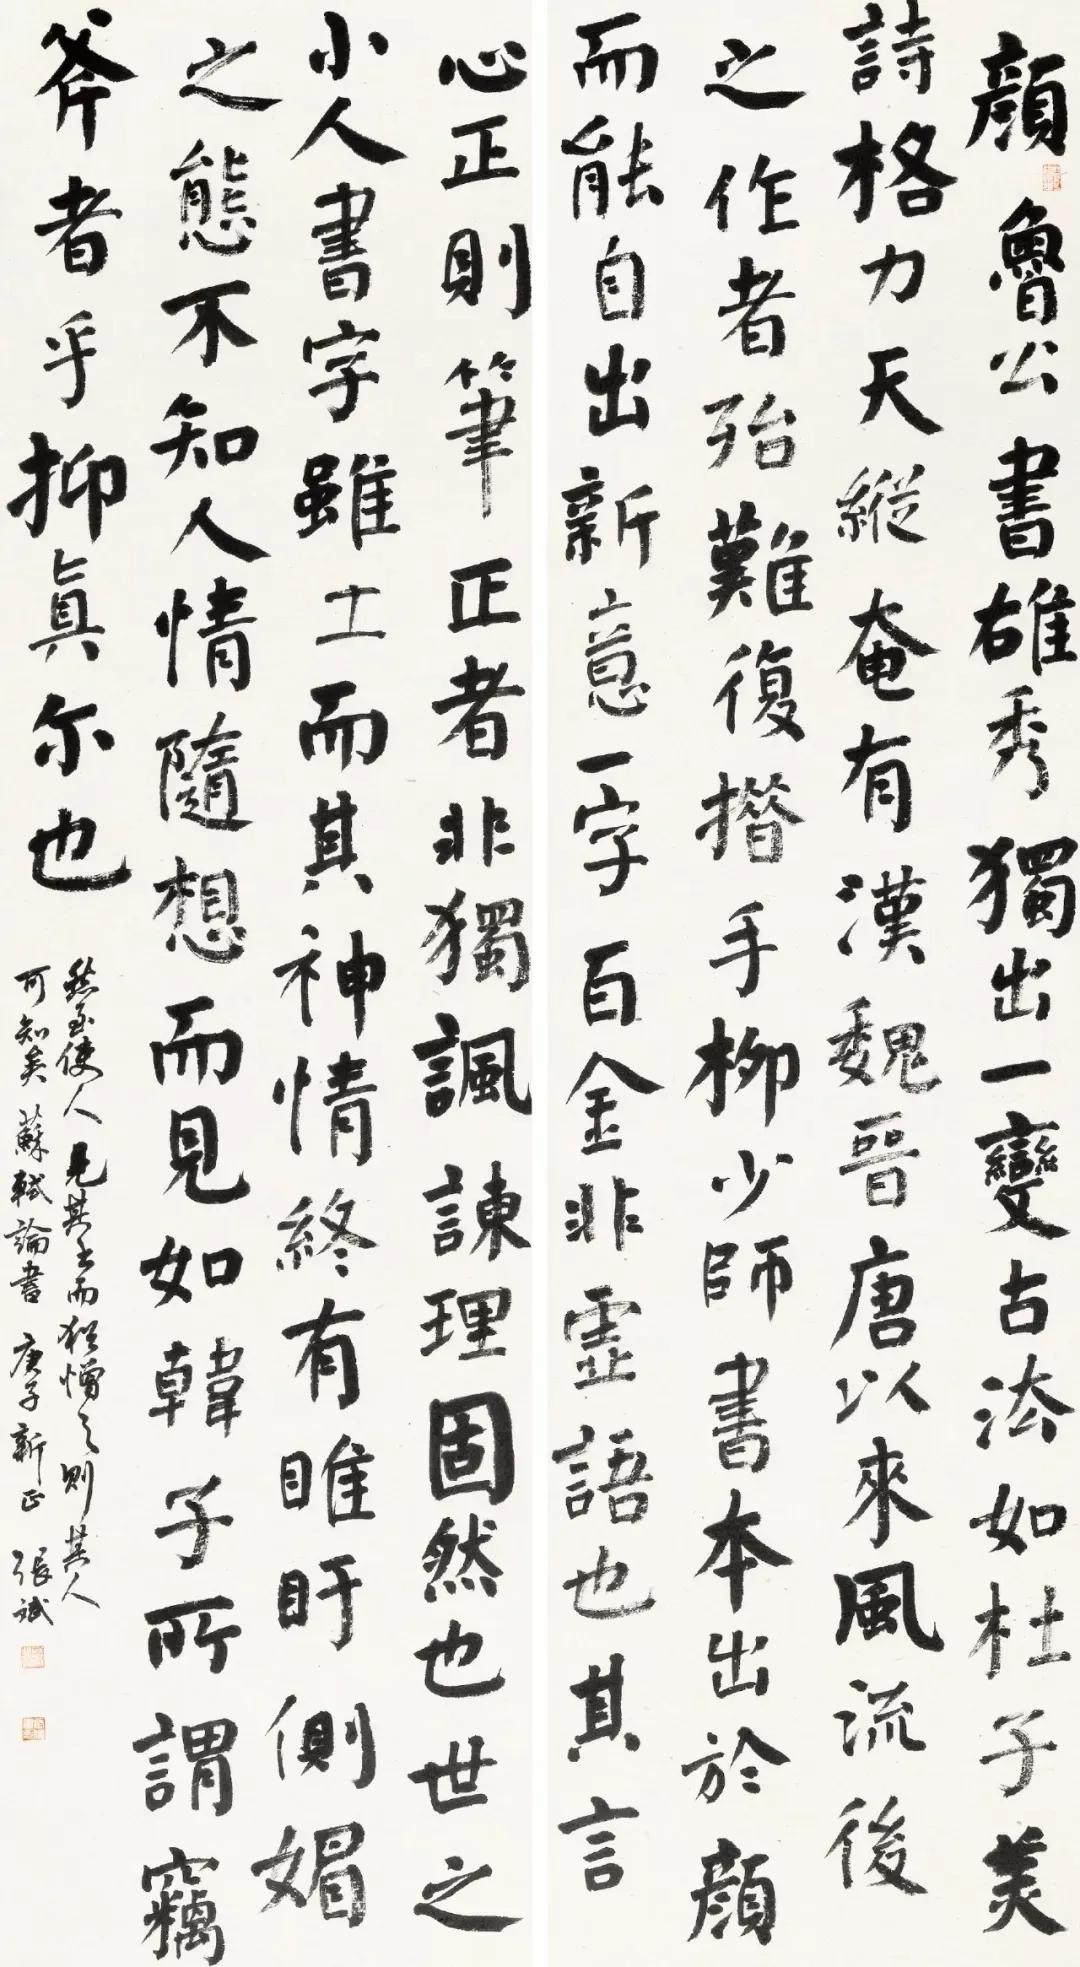 顏魯公書雄秀獨出一變古法如杜子美
詩格力天縱奄有漢魏晉唐以來風流後
之作者殆難復措手柳少師書本出於顏
而能自出新意一字百金非虛語也其言
心正則筆正者非獨諷諫理固然也世之
小人書字雖工而其神情終有睢盱側媚
之態不知人情隨想而見如韓子所謂竊
斧者乎抑真尔也
然至使人見其書而猶憎之則其人
可知矣 蘇軾論書 庚子新正 張斌